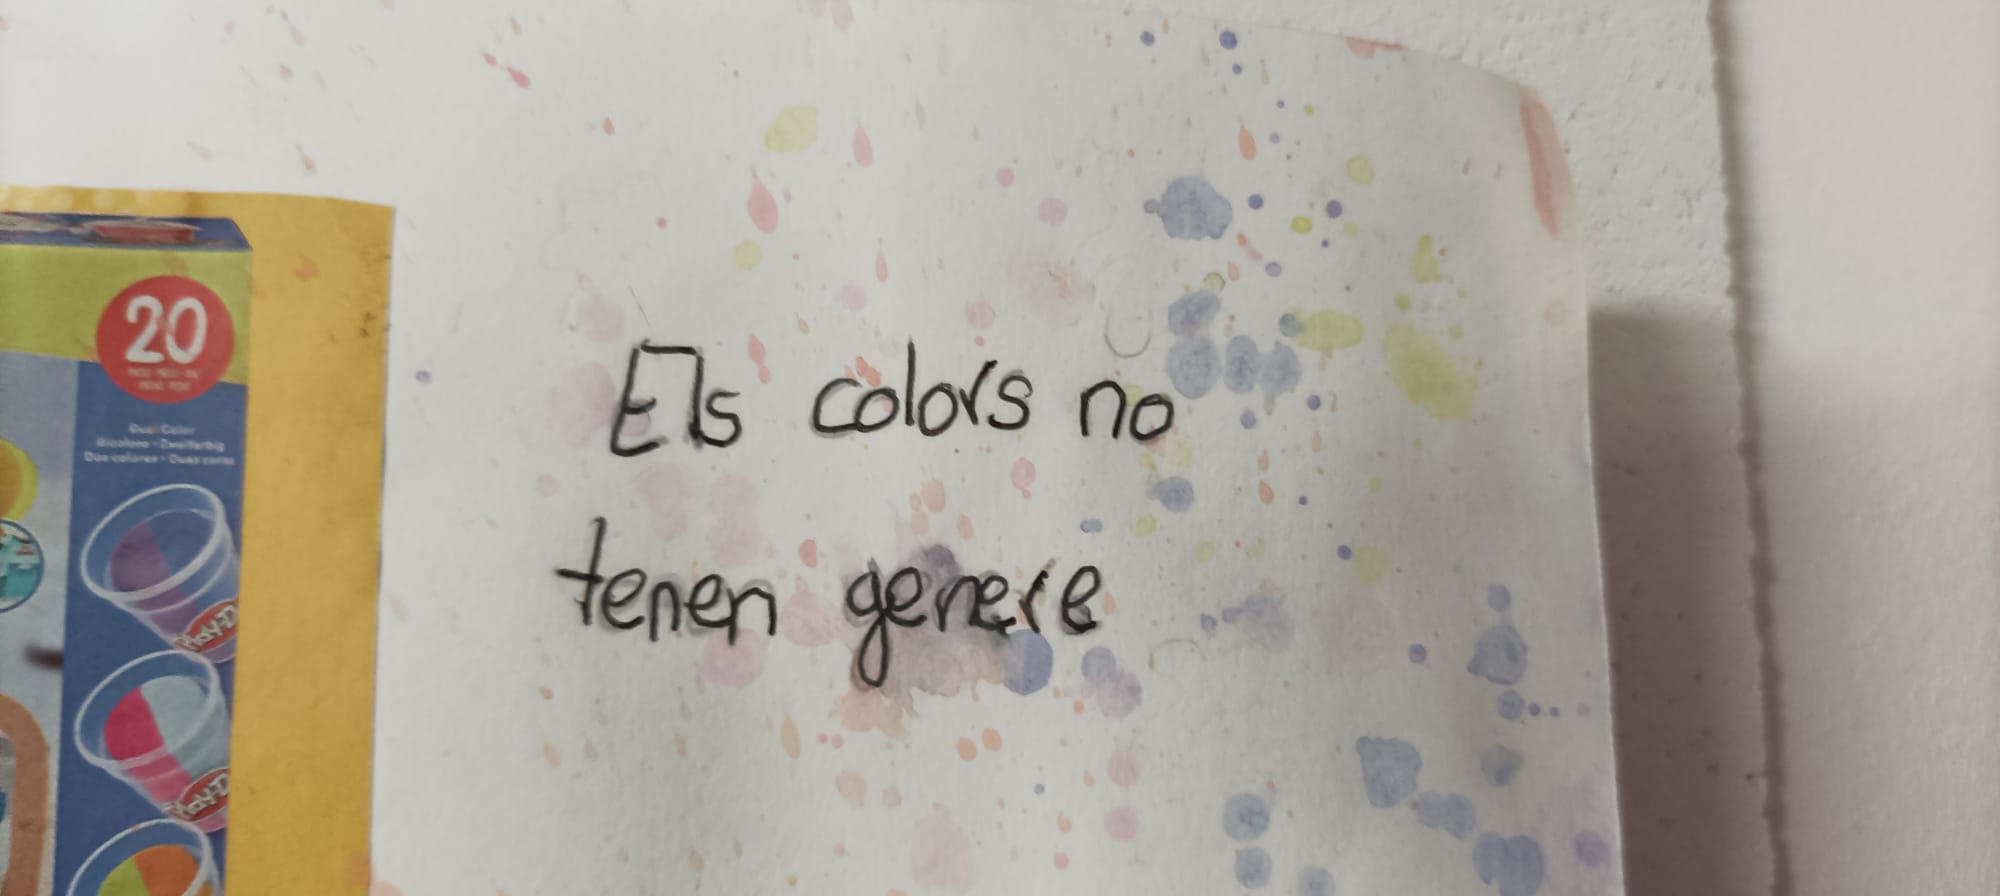 Els colors no
tenen genere
20
Dual Color
Bicolore • Zweifarbig
Dos colores • Duas cores
PLAY-D
PLAY-D